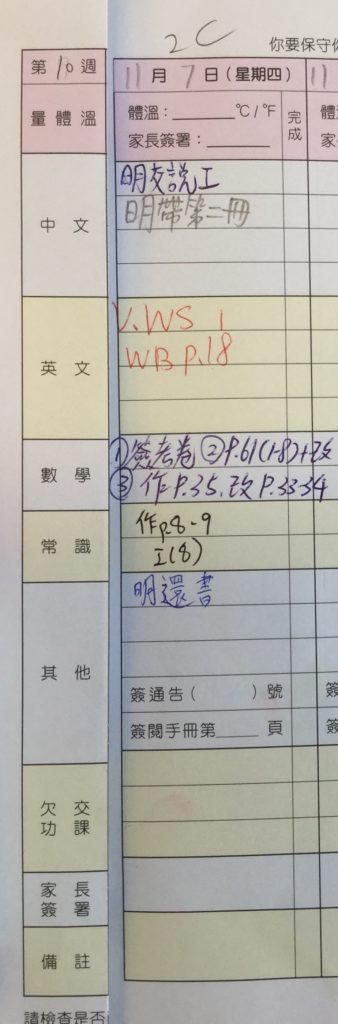 2C
你要保守你
第10週 11月7日(星期四) 11
量體溫 體溫：______℃/℉ 完成 體
家長簽署：______ 家
中文 明交說工
明帶第二冊
英文 V.WS 1
WB p.18
數學 ①簽考卷 ②P.61(1-8)+改
③ 作P.35.改P.33-34
常識 作p.8-9
工(8)
其他 明還書
簽通告( )號 簽
簽閱手冊第____頁 簽
欠交功課
家長簽署
備註
請檢查是否